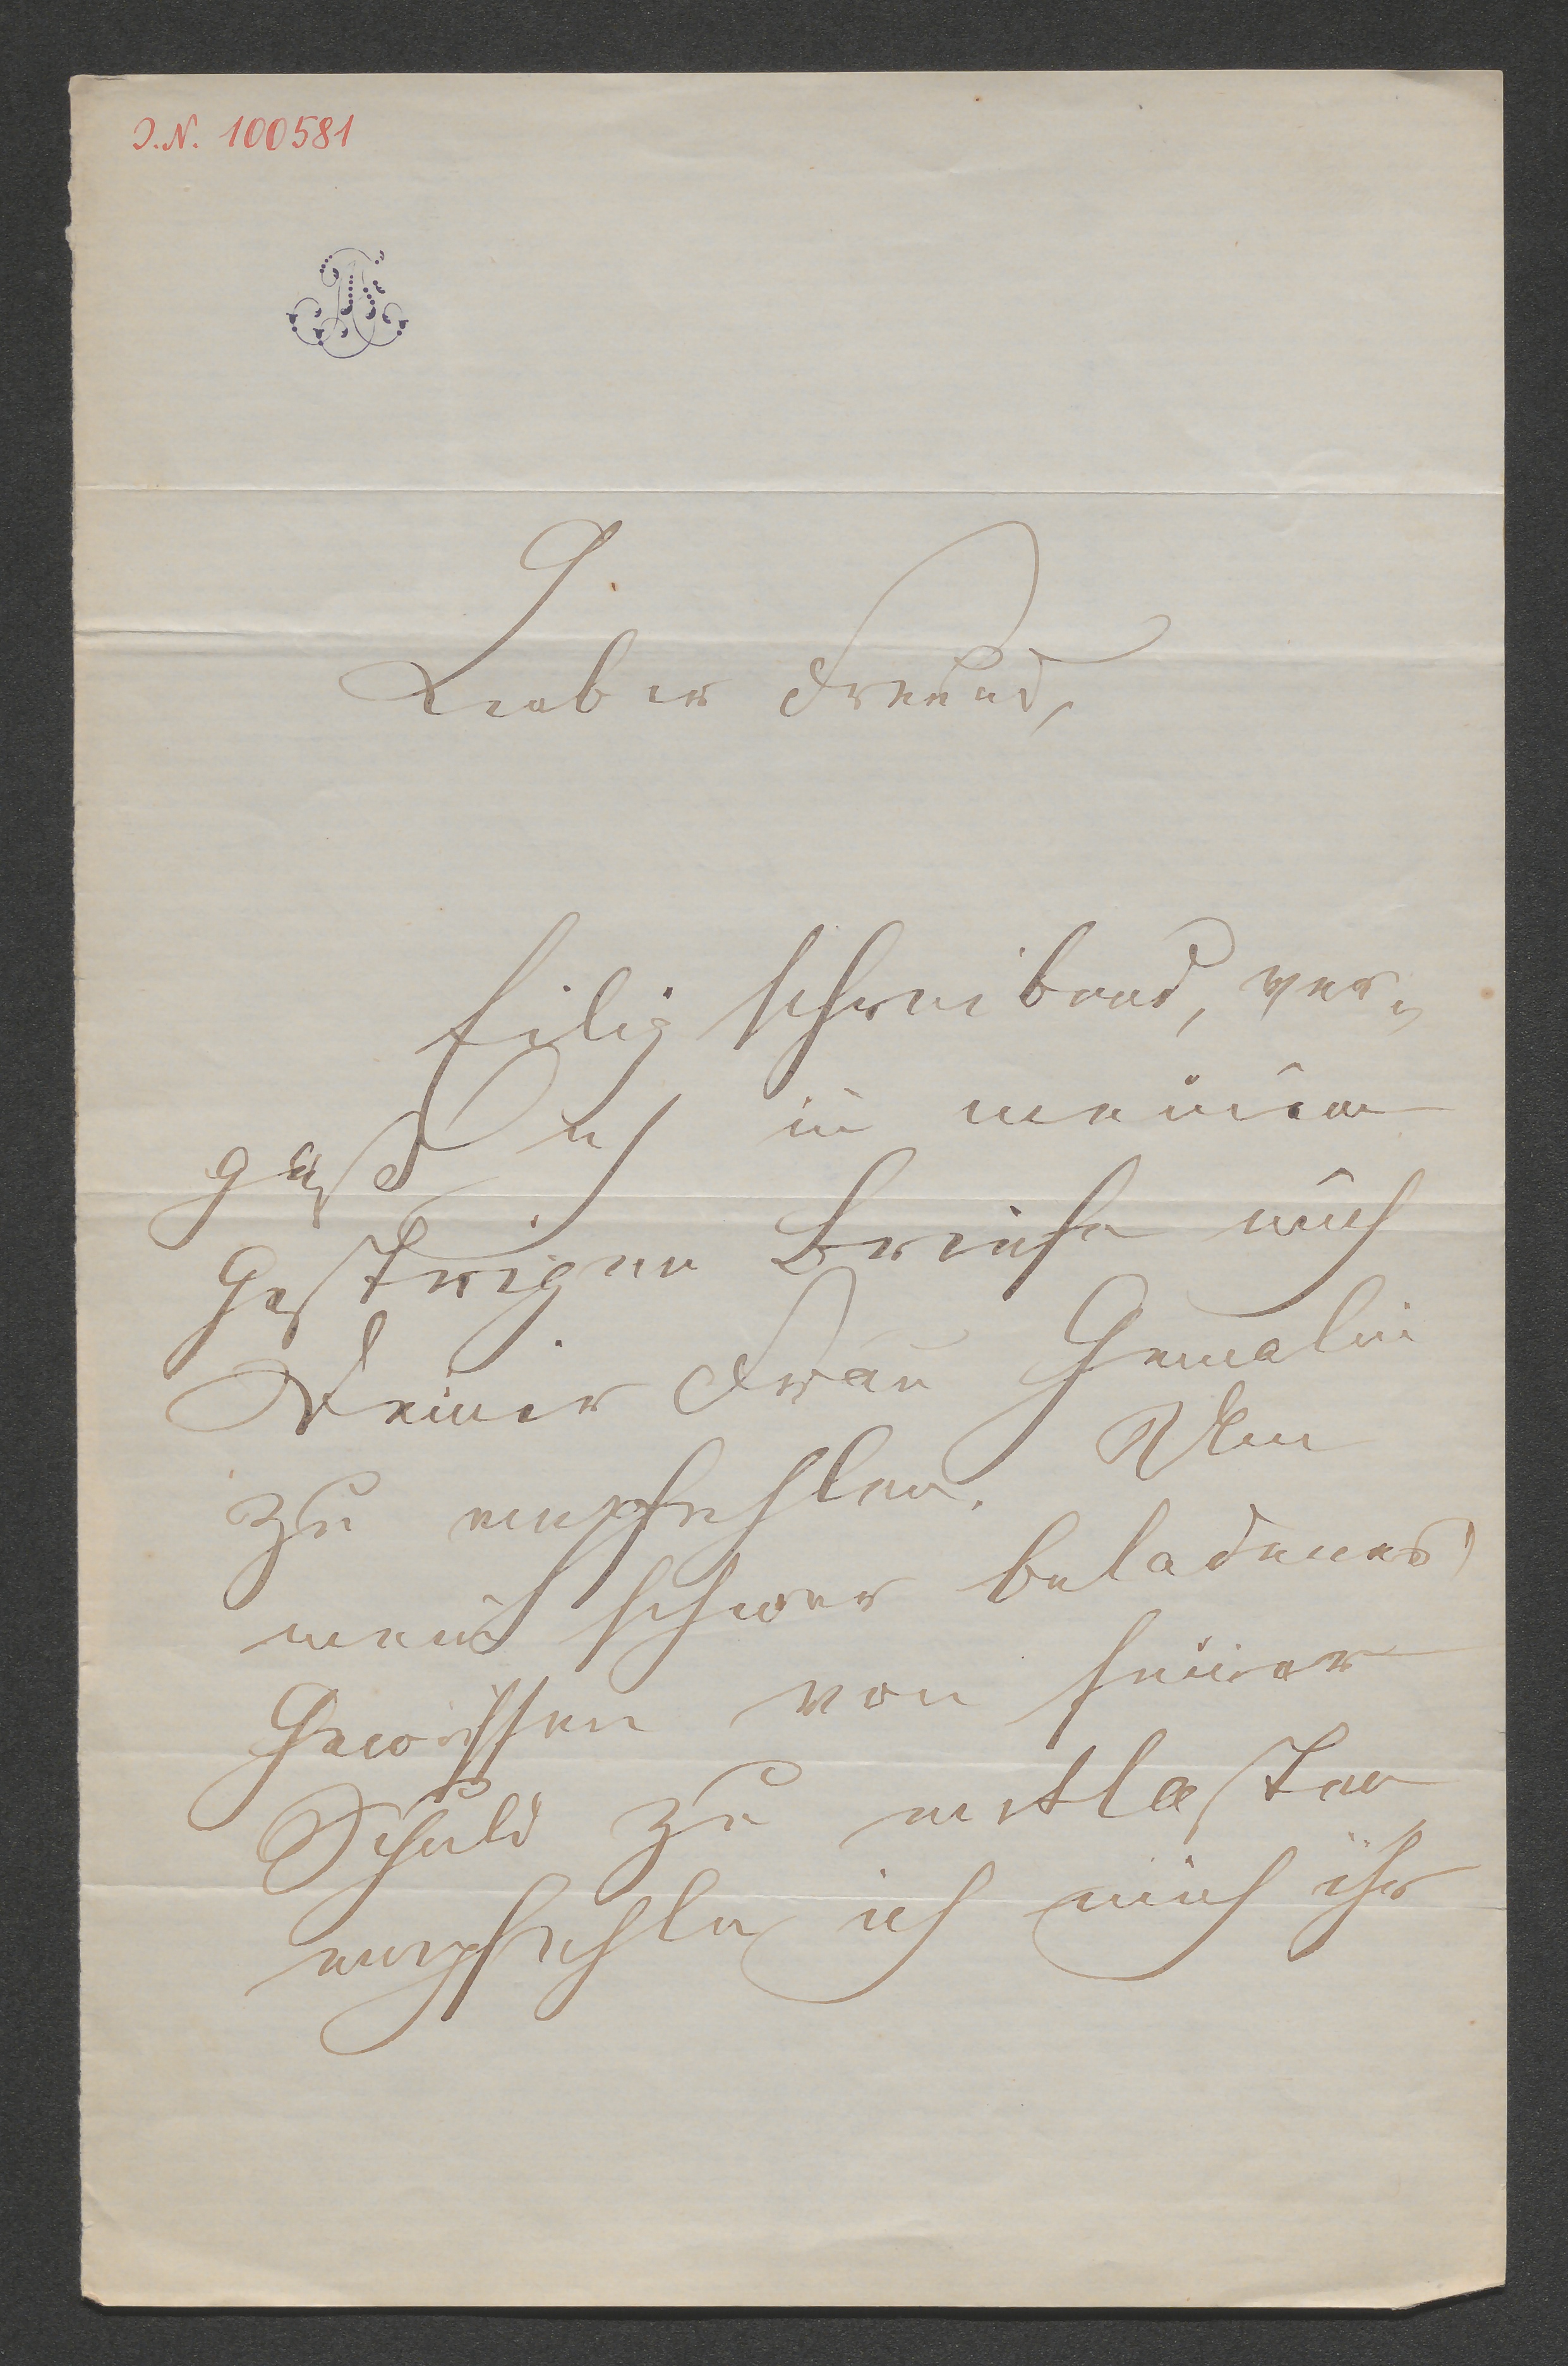 I.N. 100581
Lieber Freund,
Eilig schreibend, ver-
gaß ich in meinem
gestrigen Briefe mich
Deiner Frau Gemalin
zu empfehlen. Um
mein schwer beladenes
Gewissen von seiner
Schuld zu entlasten
empfehle ich mich ihr